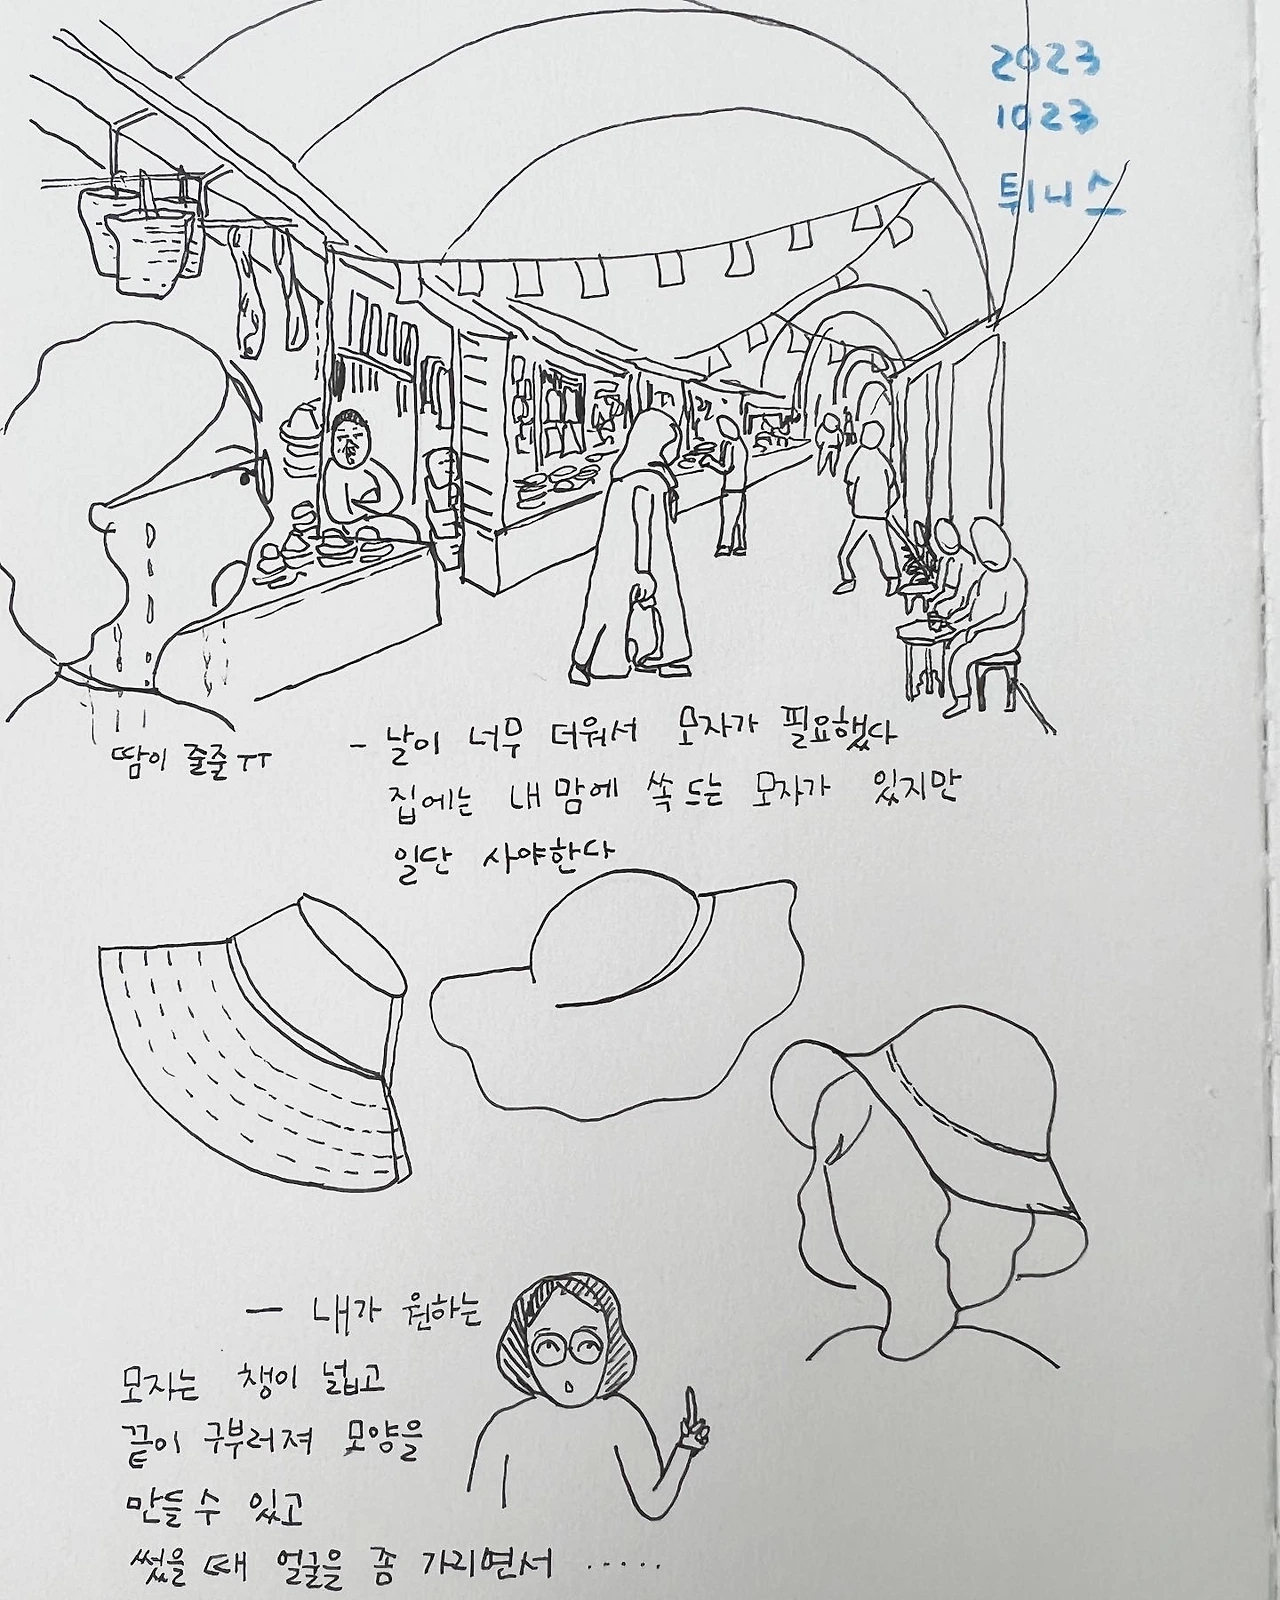 2023
1023
튀니스
땀이 줄줄ㅠㅠ
- 날이 너무 더워서 모자가 필요했다
집에는 내 맘에 쏙 드는 모자가 있지만
일단 사야한다
- 내가 원하는
모자는 챙이 넓고
끝이 구부러져 모양을
만들 수 있고
썼을 때 얼굴을 좀 가리면서 .....